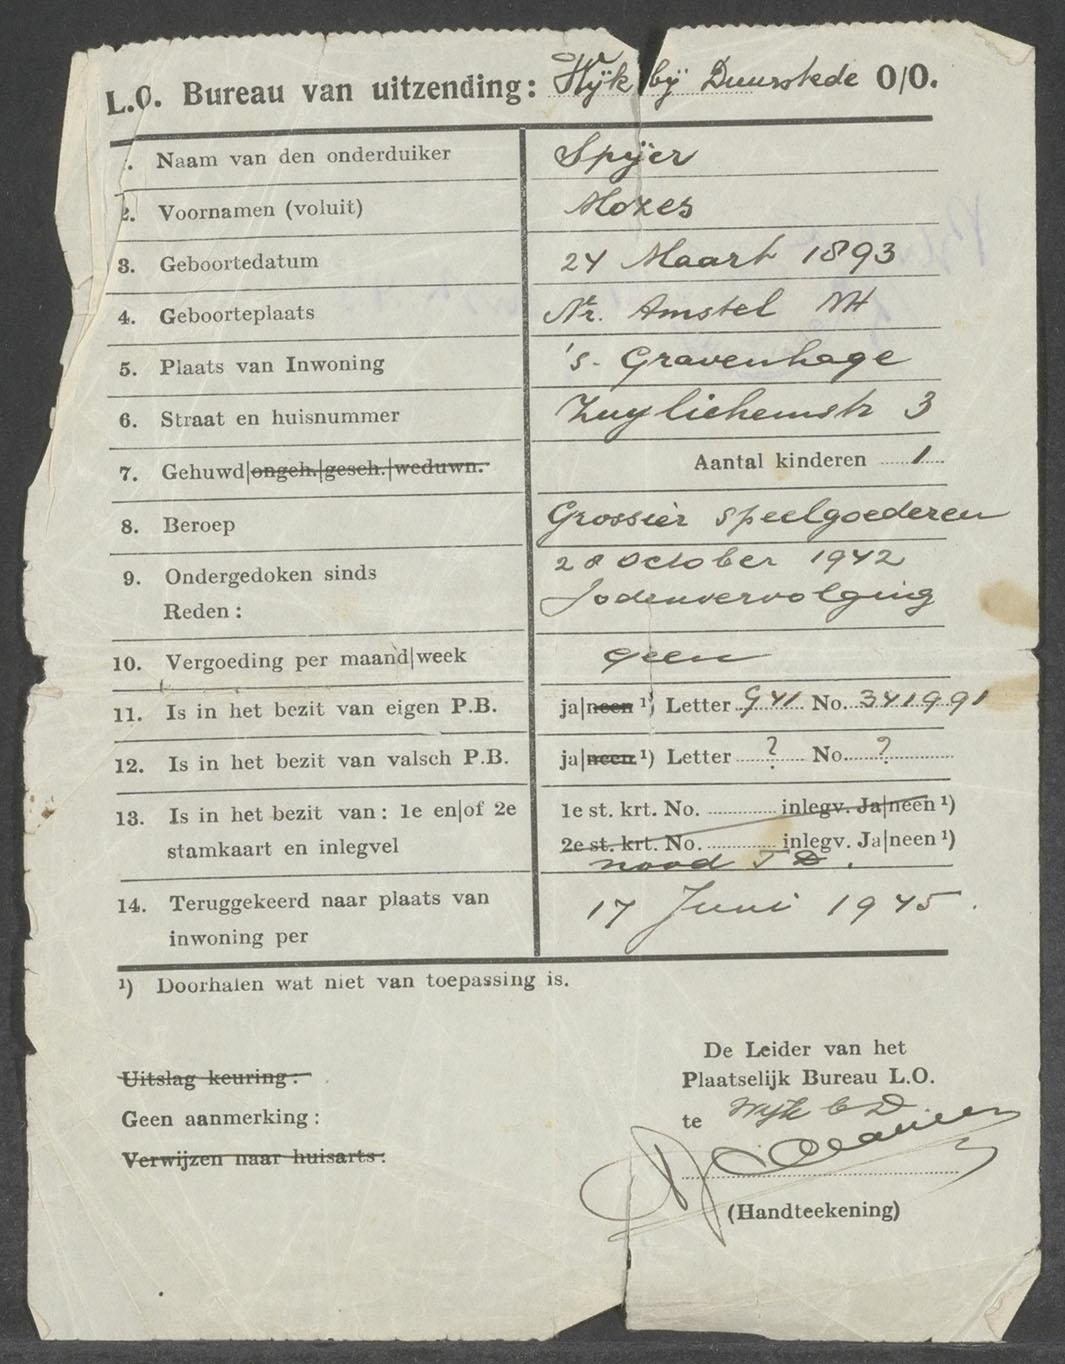 L.O. Bureau van uitzending: Wijk bij Duurstede O/O.
1. Naam van den onderduiker Spijer
2. Voornamen (voluit) Mozes
3. Geboortedatum 24 Maart 1893
4. Geboorteplaats Nr. Amstel NH
5. Plaats van Inwoning 's-Gravenhage
6. Straat en huisnummer Zuylichemstr 3
7. Gehuwd|ongeh.|gesch.|weduwn. Aantal kinderen 1
8. Beroep Grossier speelgoederen
9. Ondergedoken sinds 28 October 1942
Reden: Jodenvervolging
10. Vergoeding per maand|week geen
11. Is in het bezit van eigen P.B. ja|neen ¹) Letter G 41 No. 341991
12. Is in het bezit van valsch P.B. ja|neen ¹) Letter ? No. ?
13. Is in het bezit van: 1e en|of 2e 1e st. krt. No. inlegv. Ja|neen ¹)
stamkaart en inlegvel 2e st. krt. No. inlegv. Ja|neen ¹)
nood T D.
14. Teruggekeerd naar plaats van 17 Juni 1945.
inwoning per
¹) Doorhalen wat niet van toepassing is.
De Leider van het
Uitslag keuring: Plaatselijk Bureau L.O.
Geen aanmerking: te Wijk b D.
Verwijzen naar huisarts:
(Handteekening)